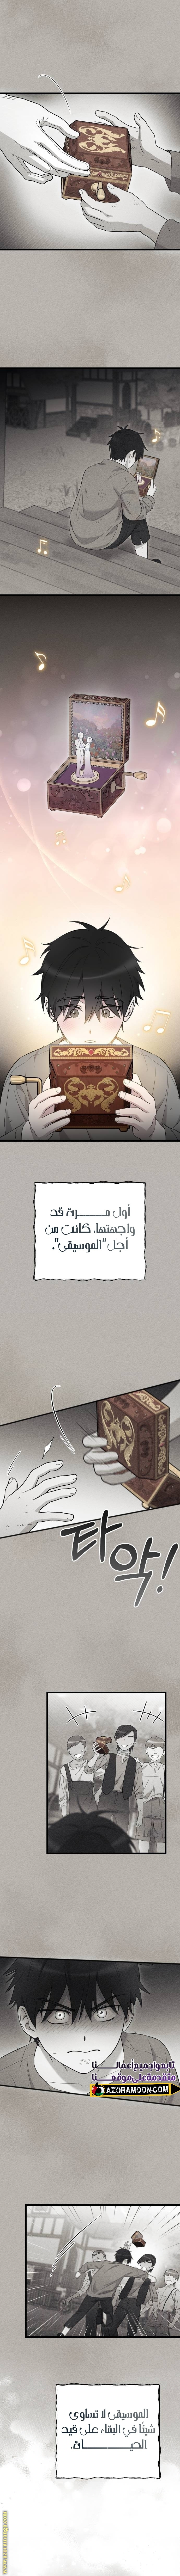 أول مرة قد
واجهتها، كانت من
أجل "الموسيقى".
타악!
تابعوا جميع اعمالنا
متقدمة على موقعنا
AZORAMOON.COM
الموسيقى لا تساوي
شيئًا في البقاء على قيد
الحياة.